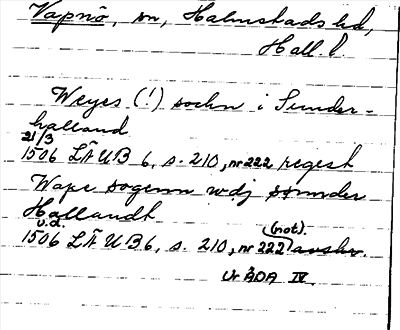 Vapnö, sn, Halmstads hd,
Hall. l.
Weyes (!) sochn i Sunder-
halland
21/3
1506 LÄUB 6, s. 210, nr 222 regest
Wape sogenn wdj sønnder
Hallandh
u.d.
(not).
1506 LÄUB 6, s. 210, nr 222 avskr.
Ur ÄDA IV.